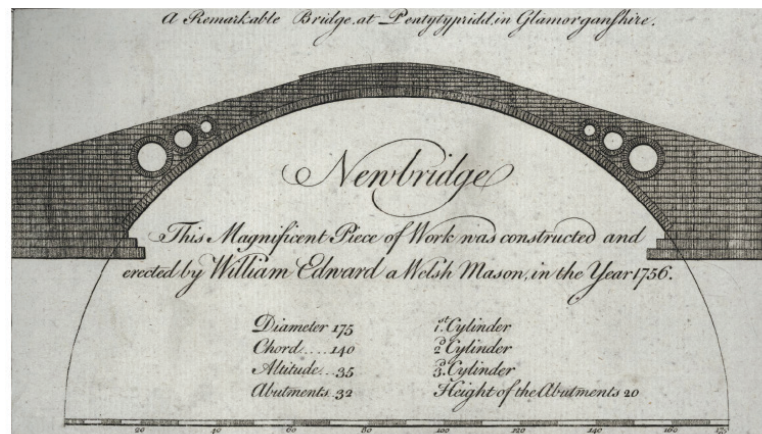 A Remarkable Bridge, at Pentytypridd, in Glamorganshire.
Newbridge
This Magnificent Piece of Work was constructed and
erected by William Edward a Welsh Mason, in the Year 1756.
Diameter 175
Chord.... 140
Altitude... 35
Abutments 32
1.st Cylinder
2.d Cylinder
3.d Cylinder
Height of the Abutments 20
20 40 60 80 100 120 140 160 175